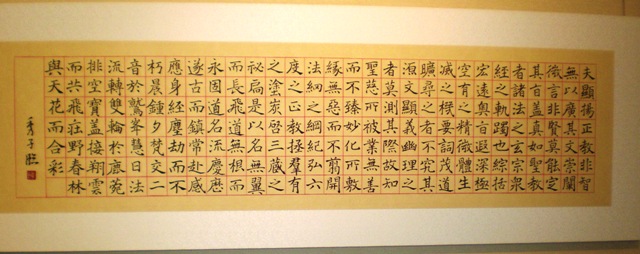 夫顯揚正教非智
無以廣其文崇闡
微言非賢莫能定
其旨蓋真如聖教
者諸法之玄宗衆
經之軌躅也綜括
宏遠奧旨遐深極
空有之精微體生
滅之機要詞茂道
曠尋之者不究其
源文顯義幽理之
者莫測其際故知
聖慈所被業無善
而不臻妙化所敷
緣無惡而不翦開
法網之綱紀弘六
度之正教拯羣有
之塗炭啓三藏之
祕扃是以名無翼
而長飛道無根而
永固道名流慶歷
遂古而鎮常赴感
應身經塵劫而不
朽晨鍾夕梵交二
音於鷲峯慧日法
流轉雙輪於鹿菀
排空寶蓋接翔雲
而共飛莊野春林
與天花而合彩
秀子臨